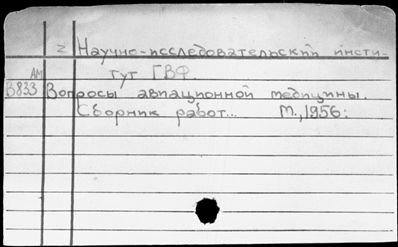 2 Научно-исследовательский инсти-
тут ГВФ.
АМ
В833 Вопросы авиационной медицины.
Сборник работ... М., 1956.